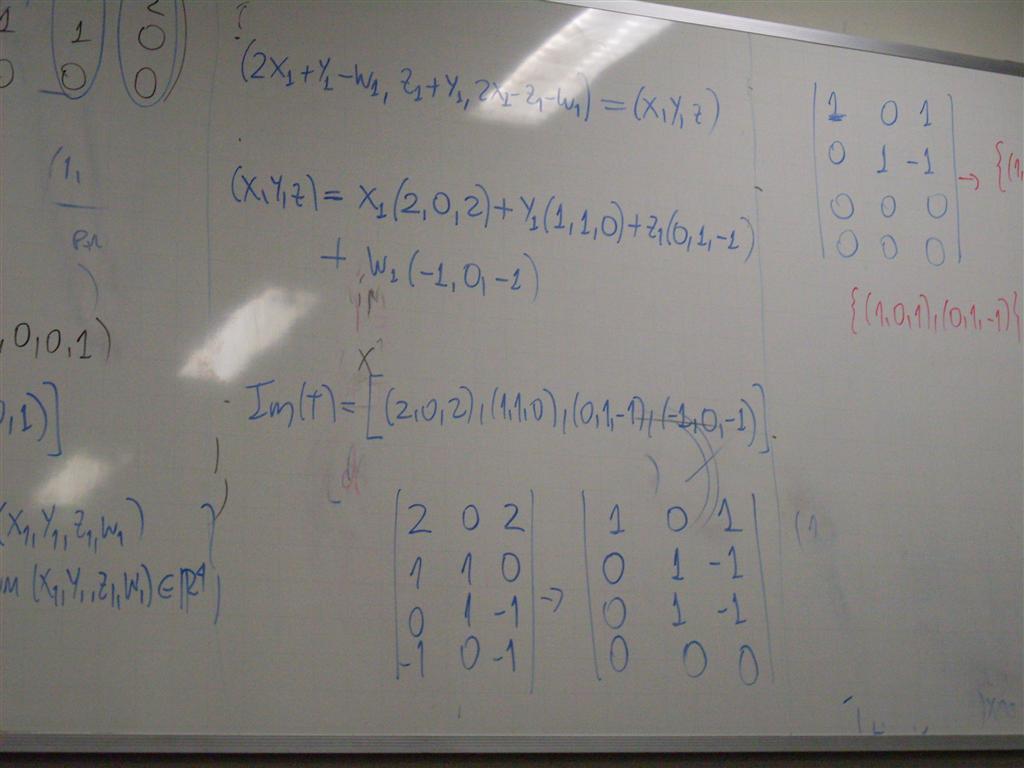 1 1 2
0 0 0
0
(1,
, 0, 0, 1)
0, 1)]
(x₁, y₁, z₁, w₁)
(x₁, y₁, z₁, w₁) ∈ ℝ⁴
(2x₁+y₁-w₁, z₁+y₁, 2x₁-z₁-w₁) = (x, y, z)
(x, y, z) = x₁(2,0,2) + y₁(1,1,0) + z₁(0,1,-1)
+ w₁(-1,0,-1)
Im(T) = [(2,0,2), (1,1,0), (0,1,-1), (-1,0,-1)].
| 2 0 2 | | 1 0 1 |
| 1 1 0 | | 0 1 -1 |
| 0 1 -1 | → | 0 1 -1 |
| -1 0 -1 | | 0 0 0 |
| 1 0 1 |
| 0 1 -1 | → {(1,
| 0 0 0 |
| 0 0 0 |
{(1,0,1), (0,1,-1)}